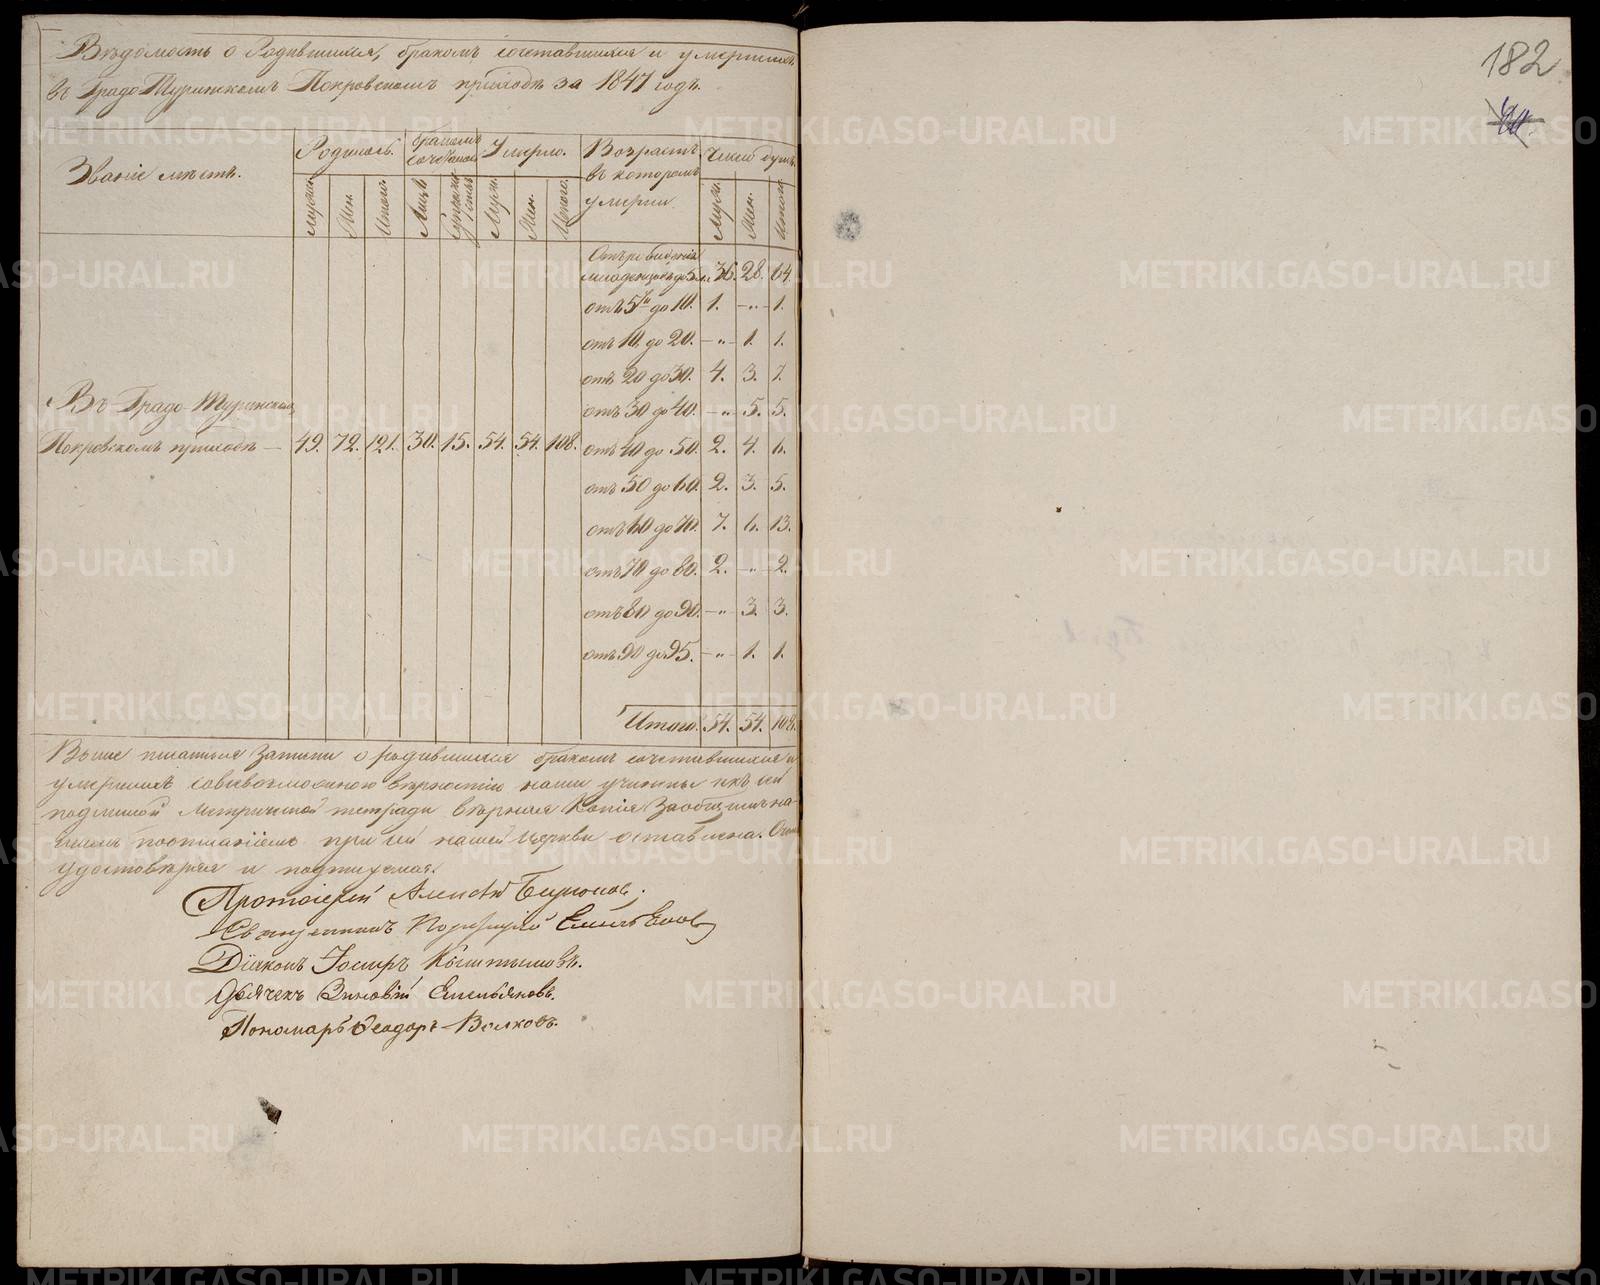 Вѣдомость о Родившихся, бракомъ сочетавшихся и умершихъ
въ Градо Туринскомъ Покровскомъ приходѣ за 1847 годъ.
Званіе мѣстъ.
Родилось.
Бракомъ сочеталось
Умерло.
Возрастъ въ которомъ умерли
Число душъ.
Муж. Жен. Итого. Лицъ Супружествъ Муж. Жен. Итого. Муж. Жен. Итого.
Отъ рожденія
младенцовъ до 5 л. 36. 28. 64.
отъ 5ти до 10. 1. -"- 1.
отъ 10. до 20. -"- 1. 1.
отъ 20 до 30. 4. 3. 7.
Въ Градо-Туринскомъ
отъ 30 до 40. -"- 5. 5.
Покровскомъ приходѣ — 49. 72. 121. 30. 15. 54. 54. 108. отъ 40 до 50. 2. 4. 6.
отъ 50 до 60. 2. 3. 5.
отъ 60 до 70. 7. 6. 13.
отъ 70 до 80. 2. -"- 2.
отъ 80 до 90. -"- 3. 3.
отъ 90 до 95. -"- 1. 1.
Итого. 54. 54. 108.
Выше писанныя Записи о родившихся бракомъ сочетавшихся и
умершихъ совсевозможною вѣрностію нами учинены и къ сей
подлинной Метрической тетради вѣрная Копія Заобщимъ на-
шимъ подписаніемъ при сей нашей Церкви оставлена.
удостовѣряя и подписуемся.
Протоіерей Алексѣй Бирюков.
Священникъ Порфирій
Діаконъ Іосифъ
Дьячекъ Зиновій Емельяновъ.
Пономарь Феодоръ Волковъ.
182
METRIKI.GASO-URAL.RU